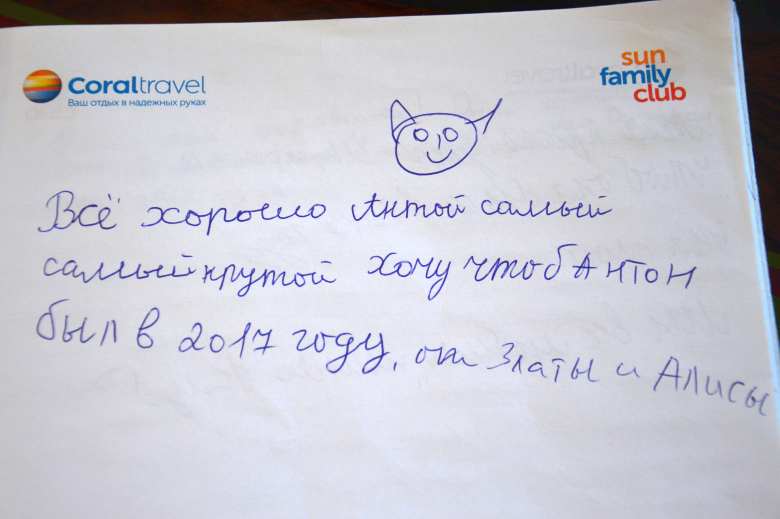 Coraltravel
Ваш отдых в надежных руках
sun
family
club
Всё хорошо Антой самый
самый крутой хочу чтоб Антон
был в 2017 году, от Златы и Алисы